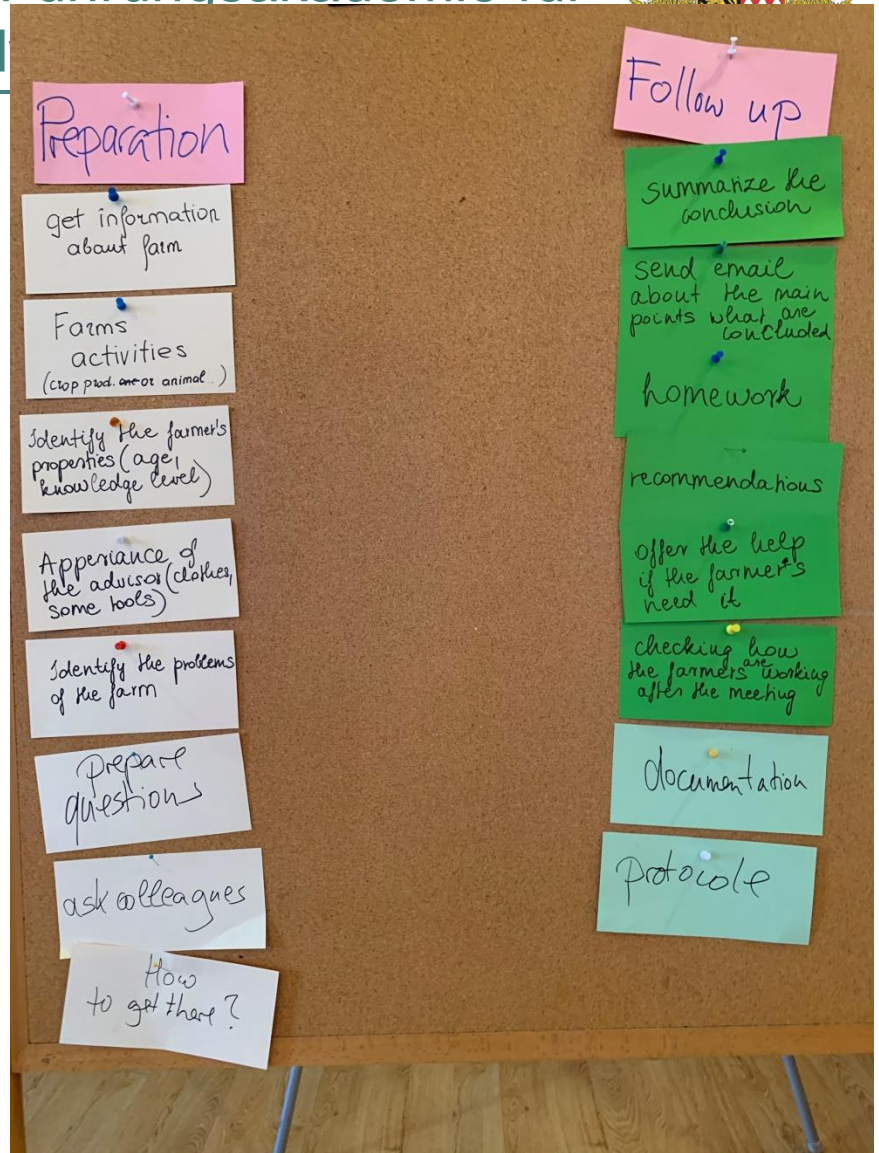 Preparation
get information
about farm
Farms
activities
(crop prod. or animal..)
Identify the farmer's
properties (age,
knowledge level)
Apperiance of
the advisor (clothes,
some tools)
Identify the problems
of the farm
prepare
questions
ask colleagues
How
to get there?
Follow up
summarize the
conclusion
send email
about the main
points what are
concluded
homework
recommendations
offer the help
if the farmer's
need it
checking how
the farmers are working
after the meeting
documentation
protocole